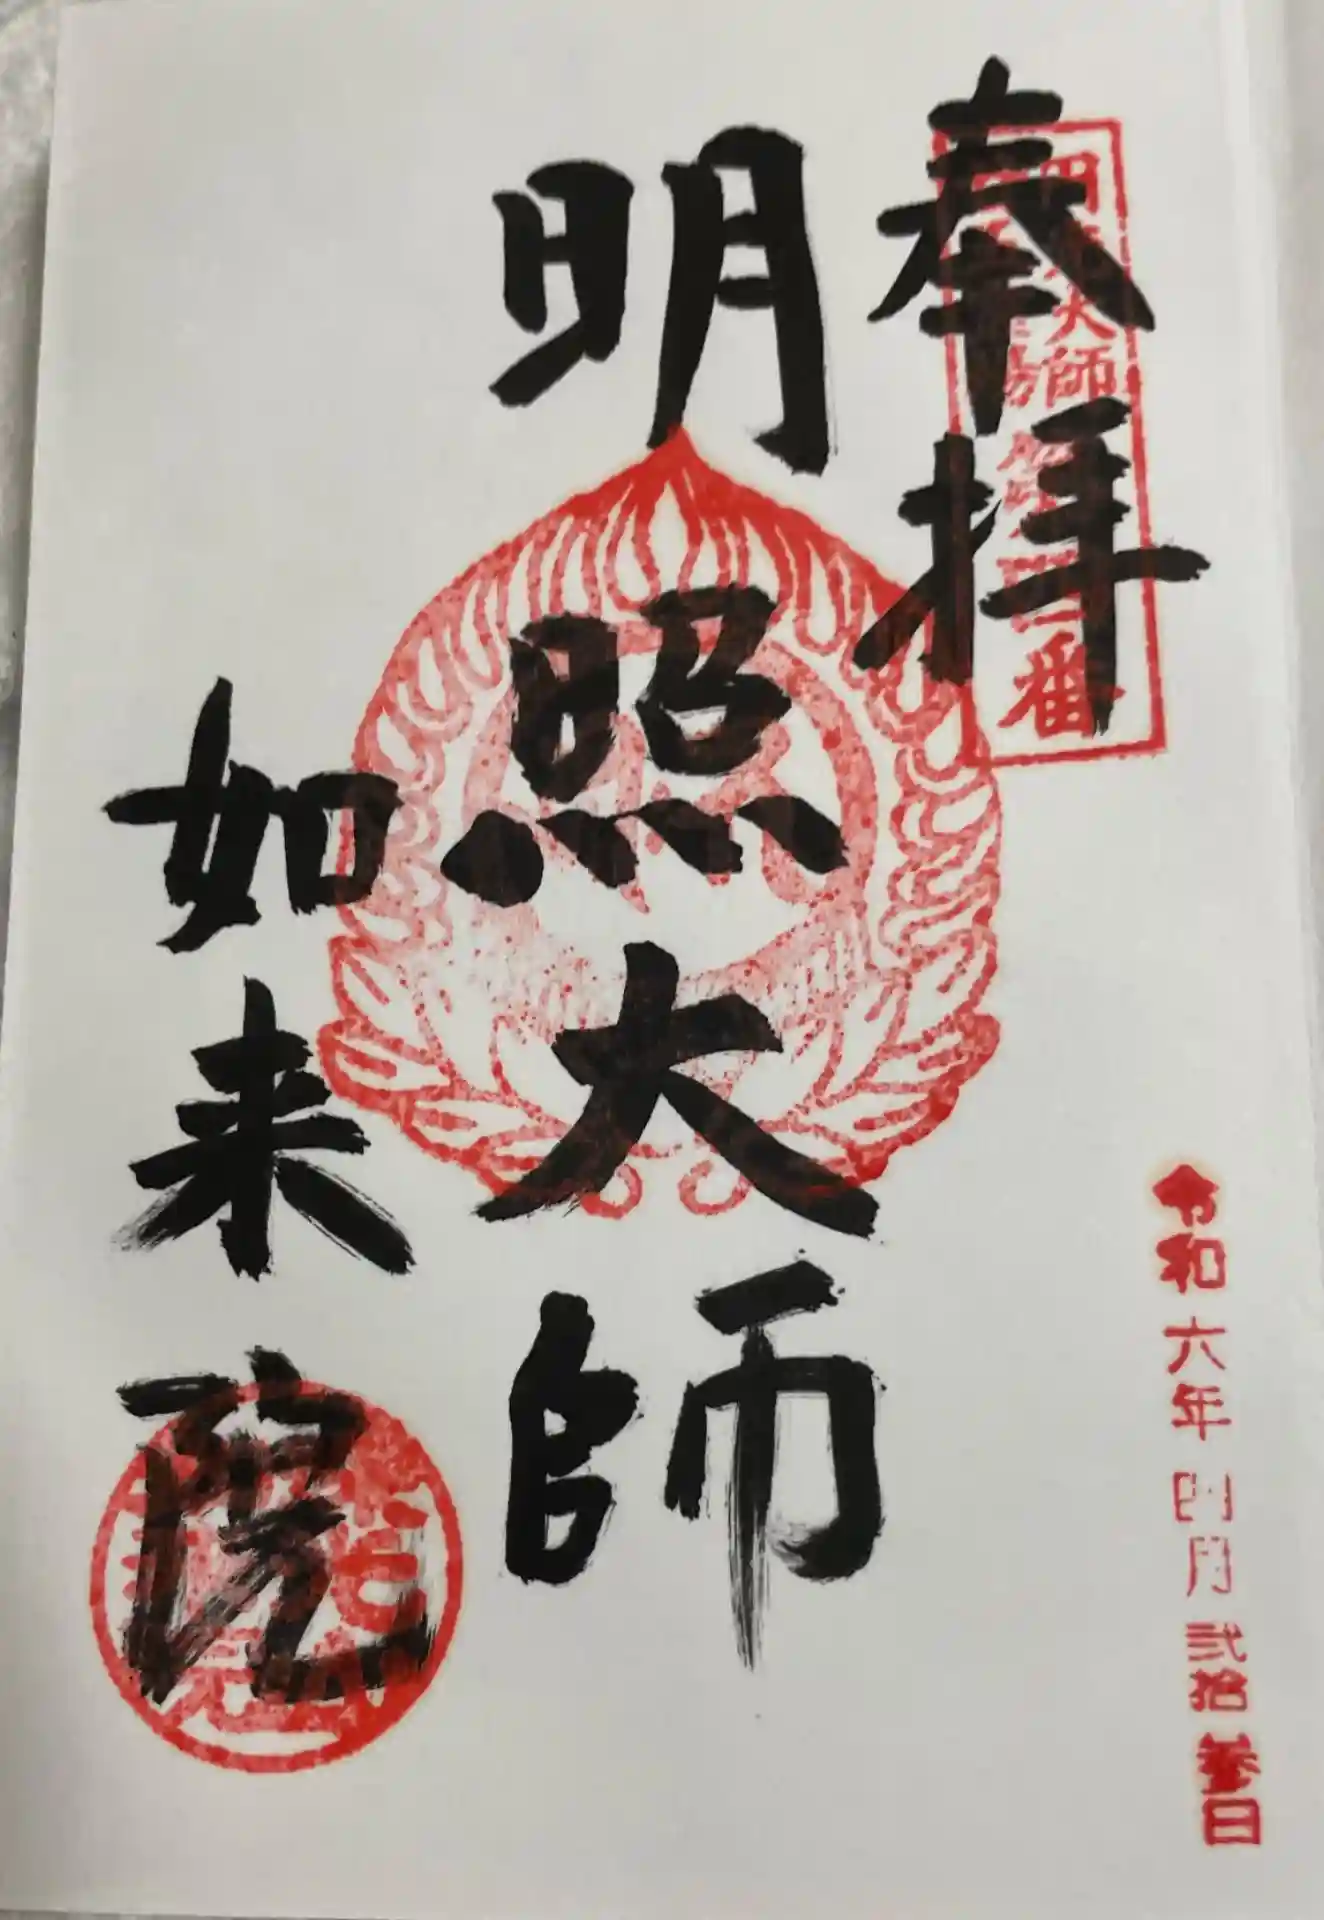 奉拝
明照大師
如来院
令和六年四月弐拾参日